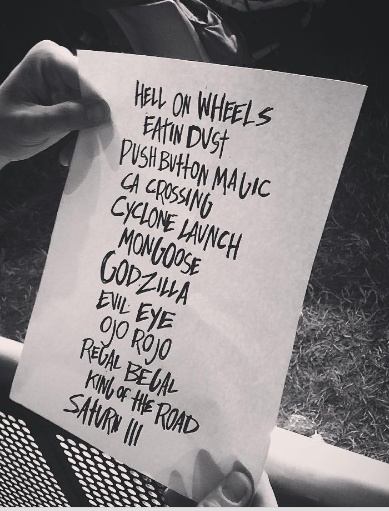 HELL ON WHEELS
EATIN DUST
PUSH BUTTON MAGIC
CA CROSSING
CYCLONE LAUNCH
MONGOOSE
GODZILLA
EVIL EYE
OJO ROJO
REGAL BEGAL
KING OF THE ROAD
SATURN III